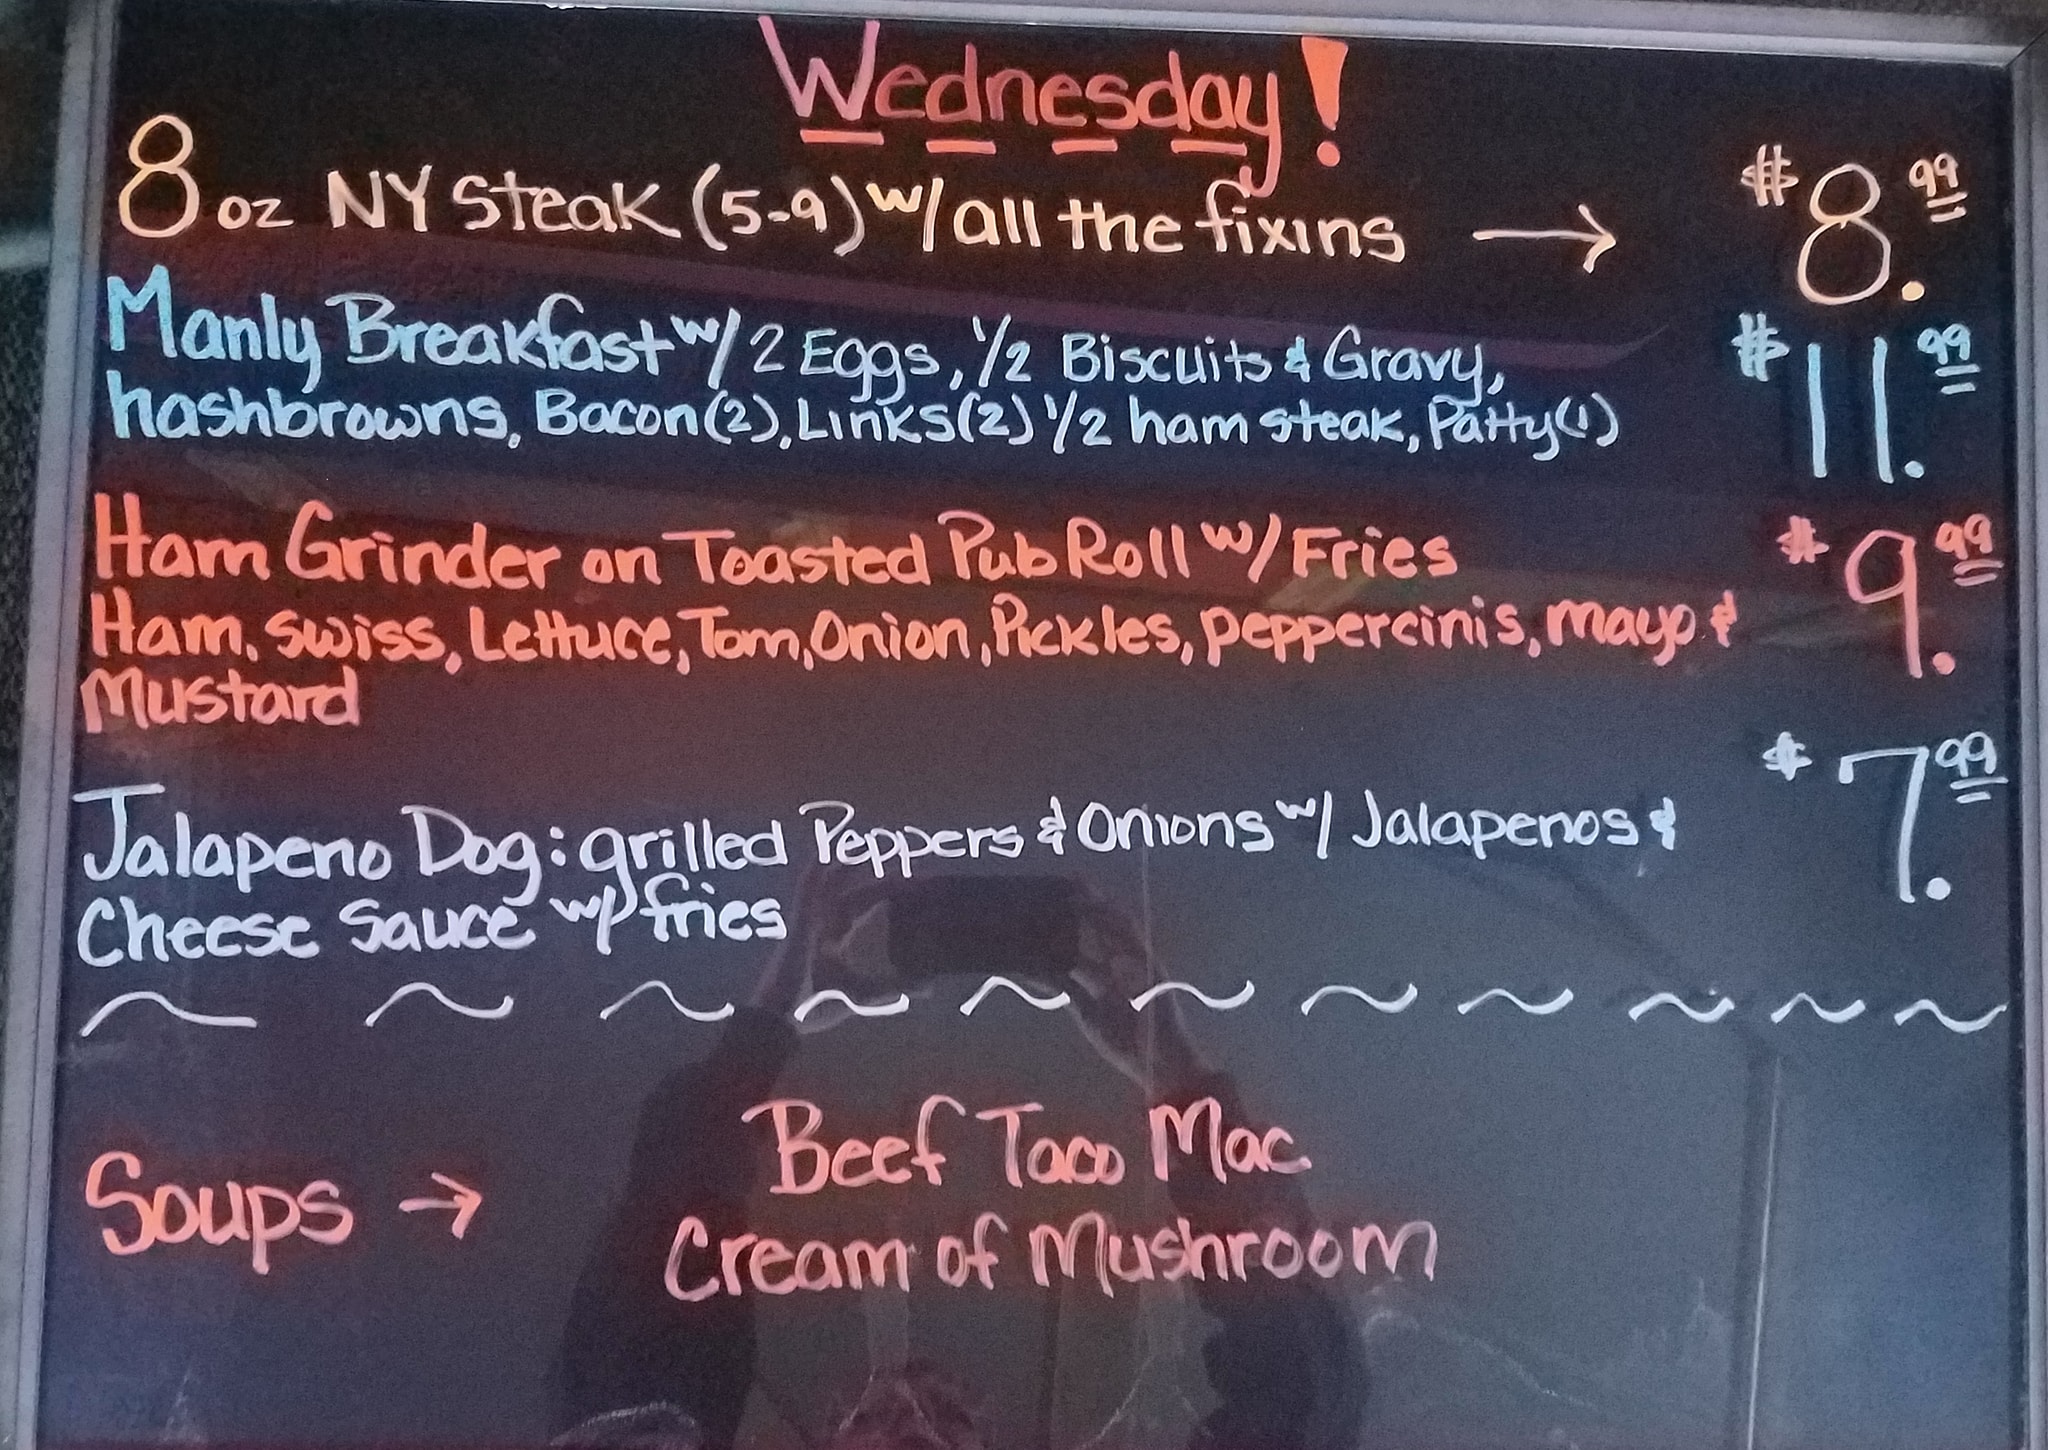 Wednesday!
8 oz NY Steak (5-9) w/ all the fixins → $8.99
Manly Breakfast w/ 2 Eggs, 1/2 Biscuits & Gravy, $11.99
hashbrowns, Bacon(2), Links(2) 1/2 ham steak, Patty(1)
Ham Grinder on Toasted Pub Roll w/ Fries $9.99
Ham, swiss, Lettuce, Tom, Onion, Pickles, peppercinis, mayo &
Mustard
Jalapeno Dog: grilled Peppers & Onions w/ Jalapenos & $7.99
Cheese Sauce w/ fries
~ ~ ~ ~ ~ ~ ~ ~ ~ ~ ~
Beef Taco Mac
Soups →
Cream of Mushroom